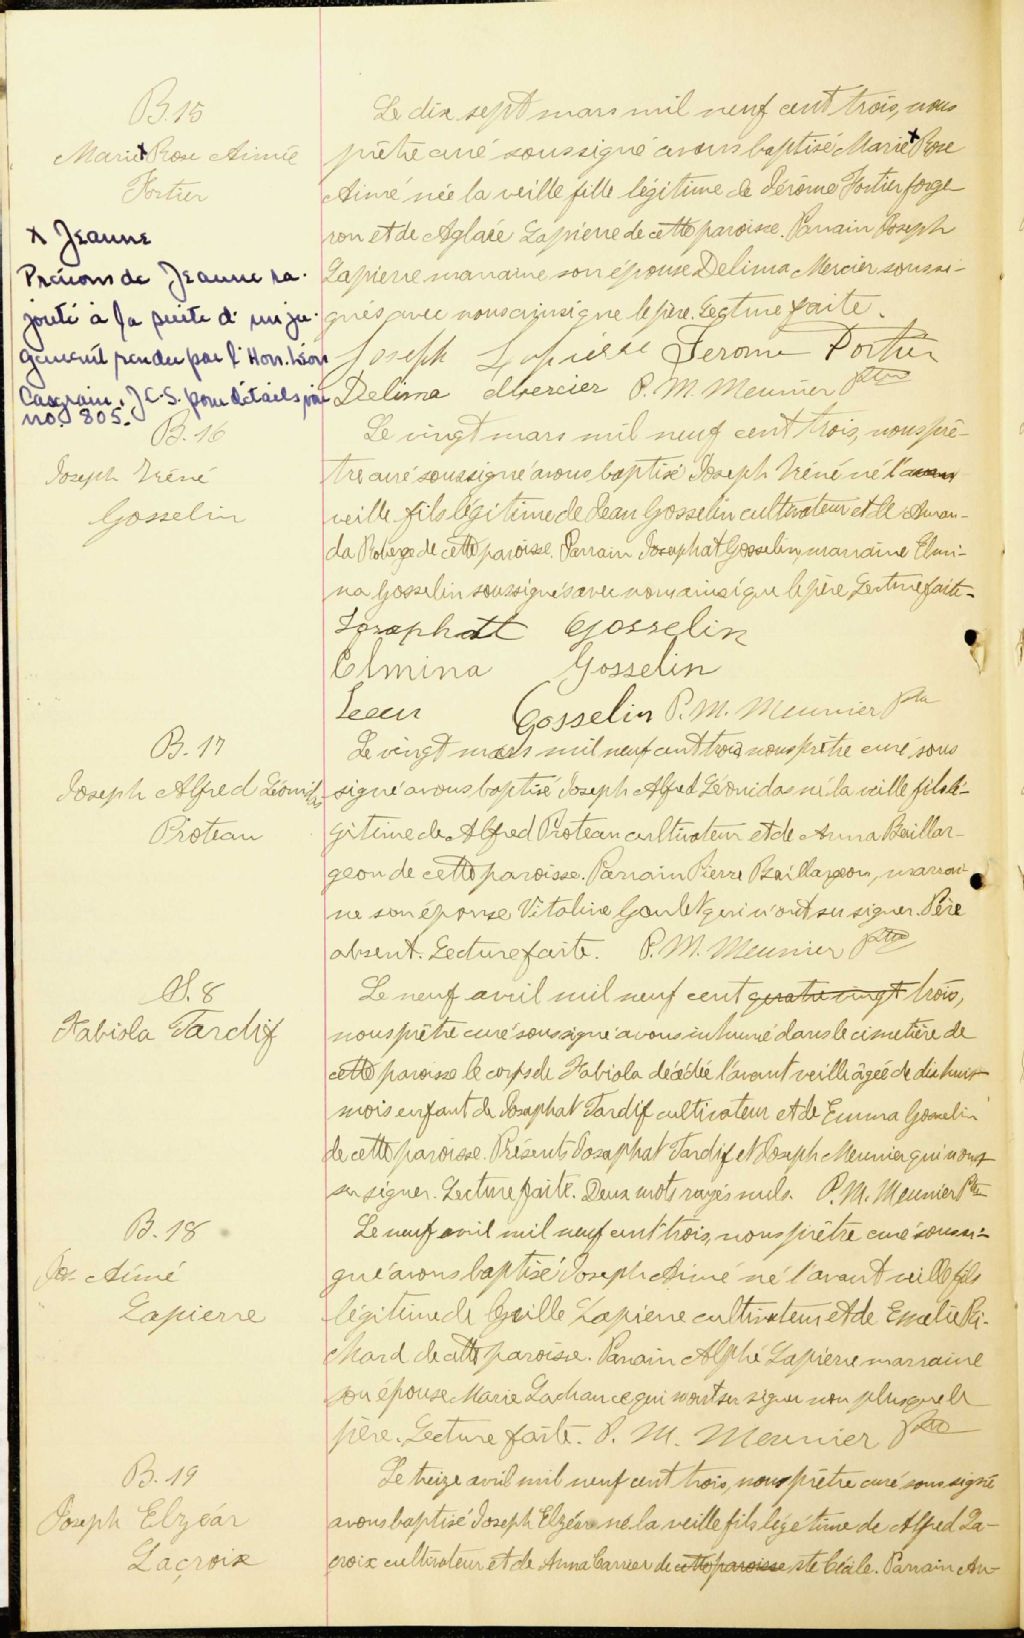 B.15
Marie x Rose Aimée
Fortier
x Jeanne
Prénom de Jeanne ra-
jouté à la suite d'un ju-
gement rendu par l'Hon. Léon
Casgrain, J.C.S. pour détails voir
no. 805.
Le dix sept mars mil neuf cent trois, nous
prêtre curé soussigné avons baptisé Marie x Rose
Aimé née la veille fille légitime de Jérôme Fortier forge
ron et de Aglaée Lapierre de cette paroisse. Parrain Joseph
Lapierre marraine son épouse Delima Mercier soussi-
gnés avec nous ainsi que le père. Lecture faite.
Joseph Lapierre Jerome Fortier
Delima Mercier P. M. Meunier Ptre
B.16
Joseph Iréné
Gosselin
Le vingt mars mil neuf cent trois, nous prê-
tre curé soussigné avons baptisé Joseph Iréné né l'avan
veille fils légitime de Jean Gosselin cultivateur et de Aman-
da Roberge de cette paroisse. Parrain Josaphat Gosselin, marraine Elmi-
na Gosselin soussignés avec nous ainsi que le père Lecture faite-
Josaphatt Gosselin
Elmina Gosselin
Jean Gosselin P. M. Meunier Ptre
B.17
Joseph Alfred Léonidas
Proteau
Le vingt mars mil neuf cent trois nous prêtre curé sous
signé avons baptisé Joseph Alfred Léonidas né la veille fils lé-
gitime de Alfred Proteau cultivateur et de Anna Baillar-
geon de cette paroisse. Parrain Pierre Baillargeon, marrai-
ne son épouse Vitaline Goulet qui n'ont su signer. Père
absent. Lecture faite. P. M. Meunier Ptre
S. 8
Fabiola Tardif
Le neuf avril mil neuf cent quatre vingt trois,
nous prêtre curé soussigné avons inhumé dans le cimetière de
cette paroisse le corps de Fabiola décédée l'avant veille âgée de dix huit
mois enfant de Josaphat Tardif cultivateur et de Emma Gosselin
de cette paroisse. Présents Josaphat Tardif et Joseph Meunier qui n'ont
su signer. Lecture faite. Deux mots rayés nuls. P. M. Meunier Ptre
B.18
Jos. Aimé
Lapierre
Le neuf avril mil neuf cent trois, nous prêtre curé soussi-
gné avons baptisé Joseph Aimé né l'avant veille fils
légitime de Lapierre cultivateur et de Emélie Ri-
chard de cette paroisse. Parrain Alphé Lapierre marraine
son épouse Marie Lachance qui n'ont su signer non plus que le
père. Lecture faite. P. M. Meunier Ptre
B.19
Joseph Elzéar
Lacroix
Le treize avril mil neuf cent trois, nous prêtre curé soussigné
avons baptisé Joseph Elzéar né la veille fils légétime de Alfred La-
croix cultivateur et de Anna Carrier de cette paroisse ste Cécile. Parrain An-